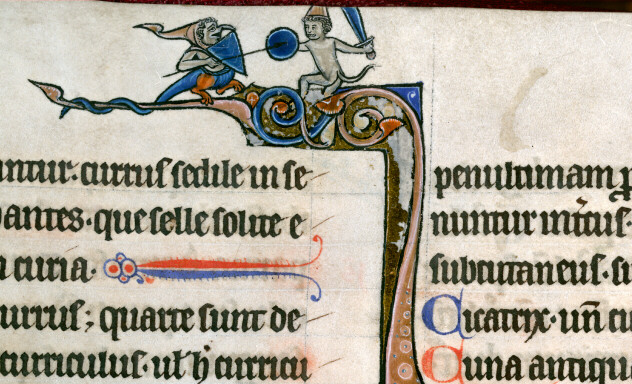 untur. currus sedile in se
antes. que selle solite e
curia.
urrus; quarte sunt de
curriculus. ul h curricu
penultimam p
nuntur intus.
subcutaneus. su
Cicatrix. un cu
Cuna antiqu